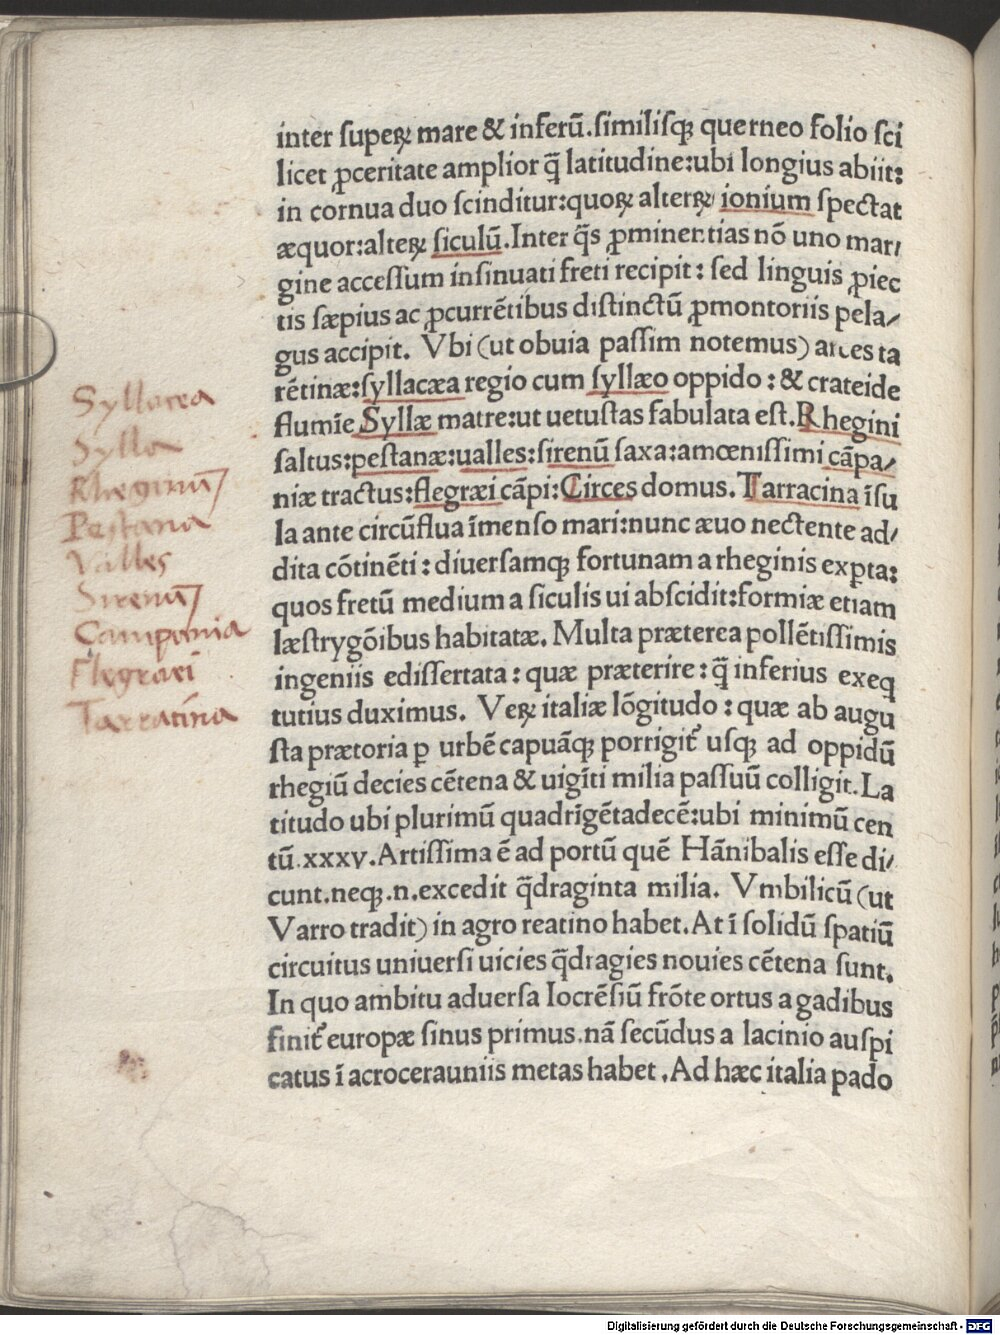 inter suꝑeꝝ mare & inferū.ſimiliſqꝫ querneo folio ſci
licet ꝓceritate amplior q̄ latitudine:ubi longius abiit:
in cornua duo ſcinditur:quoꝝ alterꝝ ionium ſpectat
æquor:alteꝝ ſiculū.Inter q̄s ꝓminentias nō uno mar/
gine acceſſum inſinuati freti recipit: ſed linguis ꝓiec
tis ſæpius ac ꝓcurrētibus diſtinctū ꝓmontoriis pela/
gus accipit. Vbi (ut obuia paſſim notemus) arces ta
rētinæ:ſyllacæa regio cum ſyllæo oppido: & crateide
flumīe Syllæ matre:ut uetuſtas fabulata eſt.Rhegini
ſaltus:peſtanæ:ualles:ſirenū ſaxa:amœniſſimi cāpa/
niæ tractus:flegræi cāpi:Circes domus.Tarracina īſu
la ante circūflua īmenſo mari:nunc æuo nectente ad/
dita cōtinēti:diuerſamqꝫ fortunam a rheginis exꝑta:
quos fretū medium a ſiculis ui abſcidit:formiæ etiam
læſtrygōibus habitatæ. Multa præterea pollētiſſimis
ingeniis ediſſertata: quæ præterire: q̄ inferius exeq
tutius duximus. Veꝝ italiæ lōgitudo: quæ ab augu
ſta prætoria ꝑ urbē capuāqꝫ porrigit᷑ uſqꝫ ad oppidū
rhegiū decies cētena & uigīti milia paſſuū colligit.La
titudo ubi plurimū quadrīgētadecē:ubi minimū cen
tū.xxxv.Artiſſima ē ad portū quē Hānibalis eſſe di/
cunt.neqꝫ.n.excedit q̄draginta milia. Vmbilicū (ut
Varro tradit) in agro reatino habet.At ī ſolidū ſpatiū
circuitus uniuerſi uicies q̄dragies nouies cētena ſunt.
In quo ambitu aduerſa locrēſiū frōte ortus a gadibus
finit᷑ europæ ſinus primus.nā ſecūdus a lacinio auſpi
catus ī acrocerauniis metas habet.Ad hæc italia pado
Syllacea
Sylla
Rheginū
Pestana
Valles
Sirenū
Campania
Flegraei
Tarracina
Digitalisierung gefördert durch die Deutsche Forschungsgemeinschaft - DFG